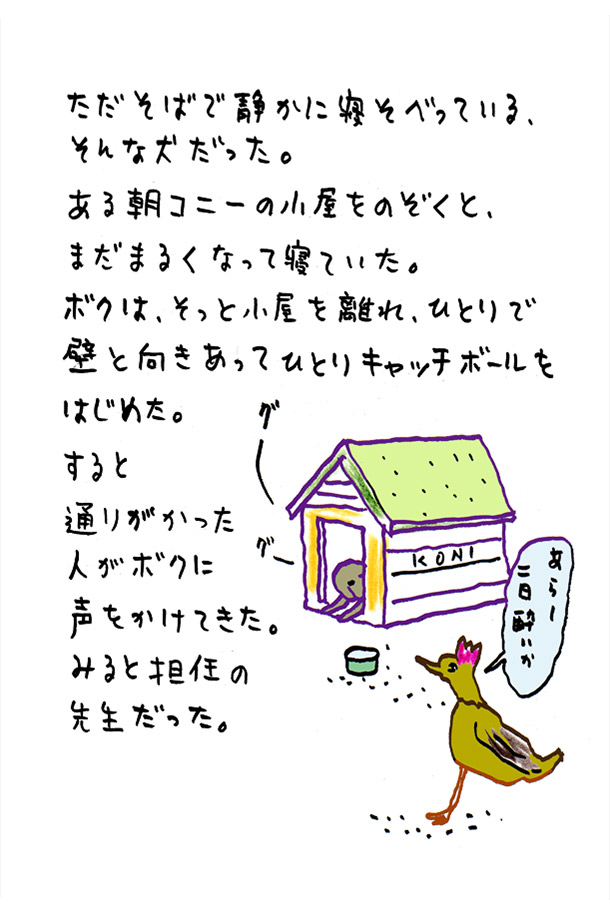 ただそばで静かに寝そべっている、
そんな犬だった。
ある朝コニーの小屋をのぞくと、
まだまるくなって寝ていた。
ボクは、そっと小屋を離れ、ひとりで
壁と向きあってひとりキャッチボールを
はじめた。
すると
通りがかった
人がボクに
声をかけてきた。
みると担任の
先生だった。
グー
グー
KONI
あらー
二日酔いか